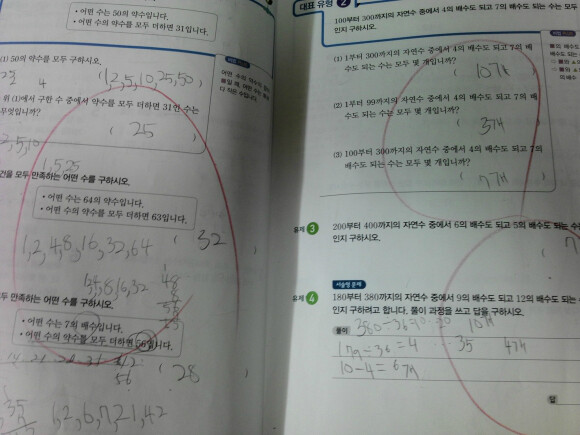 • 어떤 수는 50의 약수입니다.
• 어떤 수의 약수를 모두 더하면 31입니다.
(1) 50의 약수를 모두 구하시오.
4
(1, 2, 5, 10, 25, 50)
위 (1)에서 구한 수 중에서 약수를 모두 더하면 31인 수는
무엇입니까?
( 25 )
1, 5, 25
모두 만족하는 어떤 수를 구하시오.
• 어떤 수는 64의 약수입니다.
• 어떤 수의 약수를 모두 더하면 63입니다.
1, 2, 4, 8, 16, 32, 64
( 32 )
모두 만족하는 어떤 수를 구하시오.
• 어떤 수는 7의 배수입니다.
• 어떤 수의 약수를 모두 더하면 56입니다.
56
( 28 )
1, 2, 6, 7, 21, 42
대표 유형 2
100부터 300까지의 자연수 중에서 4의 배수도 되고 7의 배수도 되는 수는 모두
인지 구하시오.
(1) 1부터 300까지의 자연수 중에서 4의 배수도 되고 7의 배
수도 되는 수는 모두 몇 개입니까?
( 10개 )
(2) 1부터 99까지의 자연수 중에서 4의 배수도 되고 7의 배
수도 되는 수는 모두 몇 개입니까?
( 3개 )
(3) 100부터 300까지의 자연수 중에서 4의 배수도 되고 7의
배수도 되는 수는 모두 몇 개입니까?
( 7개 )
유제 3
200부터 400까지의 자연수 중에서 6의 배수도 되고 5의 배수도 되는 수는
인지 구하시오.
서술형 문제
유제 4
180부터 380까지의 자연수 중에서 9의 배수도 되고 12의 배수도 되는 수는
인지 구하려고 합니다. 풀이 과정을 쓰고 답을 구하시오.
풀이
10개
35 4개
10-4=6개
답